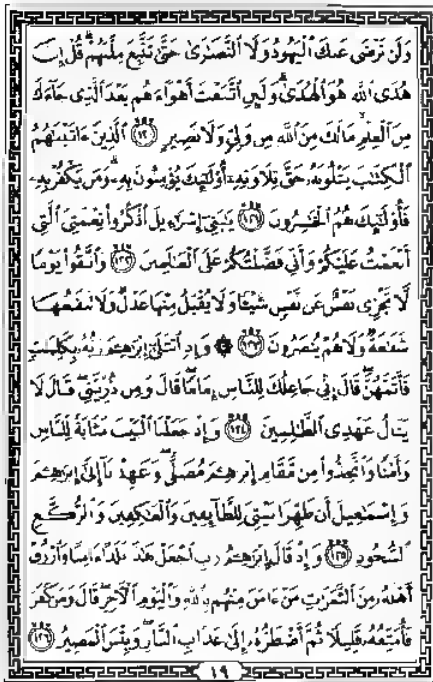 وَلَن تَرْضَىٰ عَنكَ ٱلْيَهُودُ وَلَا ٱلنَّصَٰرَىٰ حَتَّىٰ تَتَّبِعَ مِلَّتَهُمْ ۗ قُلْ إِنَّ
هُدَى ٱللَّهِ هُوَ ٱلْهُدَىٰ ۗ وَلَئِنِ ٱتَّبَعْتَ أَهْوَآءَهُم بَعْدَ ٱلَّذِى جَآءَكَ
مِنَ ٱلْعِلْمِ ۙ مَا لَكَ مِنَ ٱللَّهِ مِن وَلِىٍّ وَلَا نَصِيرٍ ﴿١٢٠﴾ ٱلَّذِينَ ءَاتَيْنَٰهُمُ
ٱلْكِتَٰبَ يَتْلُونَهُۥ حَقَّ تِلَاوَتِهِۦٓ أُو۟لَٰٓئِكَ يُؤْمِنُونَ بِهِۦ ۗ وَمَن يَكْفُرْ بِهِۦ
فَأُو۟لَٰٓئِكَ هُمُ ٱلْخَٰسِرُونَ ﴿١٢١﴾ يَٰبَنِىٓ إِسْرَٰٓءِيلَ ٱذْكُرُوا۟ نِعْمَتِىَ ٱلَّتِىٓ
أَنْعَمْتُ عَلَيْكُمْ وَأَنِّى فَضَّلْتُكُمْ عَلَى ٱلْعَٰلَمِينَ ﴿١٢٢﴾ وَٱتَّقُوا۟ يَوْمًا
لَّا تَجْزِى نَفْسٌ عَن نَّفْسٍ شَيْـًٔا وَلَا يُقْبَلُ مِنْهَا عَدْلٌ وَلَا تَنفَعُهَا
شَفَٰعَةٌ وَلَا هُمْ يُنصَرُونَ ﴿١٢٣﴾ ۞ وَإِذِ ٱبْتَلَىٰٓ إِبْرَٰهِۦمَ رَبُّهُۥ بِكَلِمَٰتٍ
فَأَتَمَّهُنَّ ۖ قَالَ إِنِّى جَاعِلُكَ لِلنَّاسِ إِمَامًا ۖ قَالَ وَمِن ذُرِّيَّتِى ۖ قَالَ لَا
يَنَالُ عَهْدِى ٱلظَّٰلِمِينَ ﴿١٢٤﴾ وَإِذْ جَعَلْنَا ٱلْبَيْتَ مَثَابَةً لِّلنَّاسِ
وَأَمْنًا وَٱتَّخِذُوا۟ مِن مَّقَامِ إِبْرَٰهِۦمَ مُصَلًّى ۖ وَعَهِدْنَآ إِلَىٰٓ إِبْرَٰهِۦمَ
وَإِسْمَٰعِيلَ أَن طَهِّرَا بَيْتِىَ لِلطَّآئِفِينَ وَٱلْعَٰكِفِينَ وَٱلرُّكَّعِ
ٱلسُّجُودِ ﴿١٢٥﴾ وَإِذْ قَالَ إِبْرَٰهِۦمُ رَبِّ ٱجْعَلْ هَٰذَا بَلَدًا ءَامِنًا وَٱرْزُقْ
أَهْلَهُۥ مِنَ ٱلثَّمَرَٰتِ مَنْ ءَامَنَ مِنْهُم بِٱللَّهِ وَٱلْيَوْمِ ٱلْءَاخِرِ ۖ قَالَ وَمَن كَفَرَ
فَأُمَتِّعُهُۥ قَلِيلًا ثُمَّ أَضْطَرُّهُۥٓ إِلَىٰ عَذَابِ ٱلنَّارِ ۖ وَبِئْسَ ٱلْمَصِيرُ ﴿١٢٦﴾
١٩